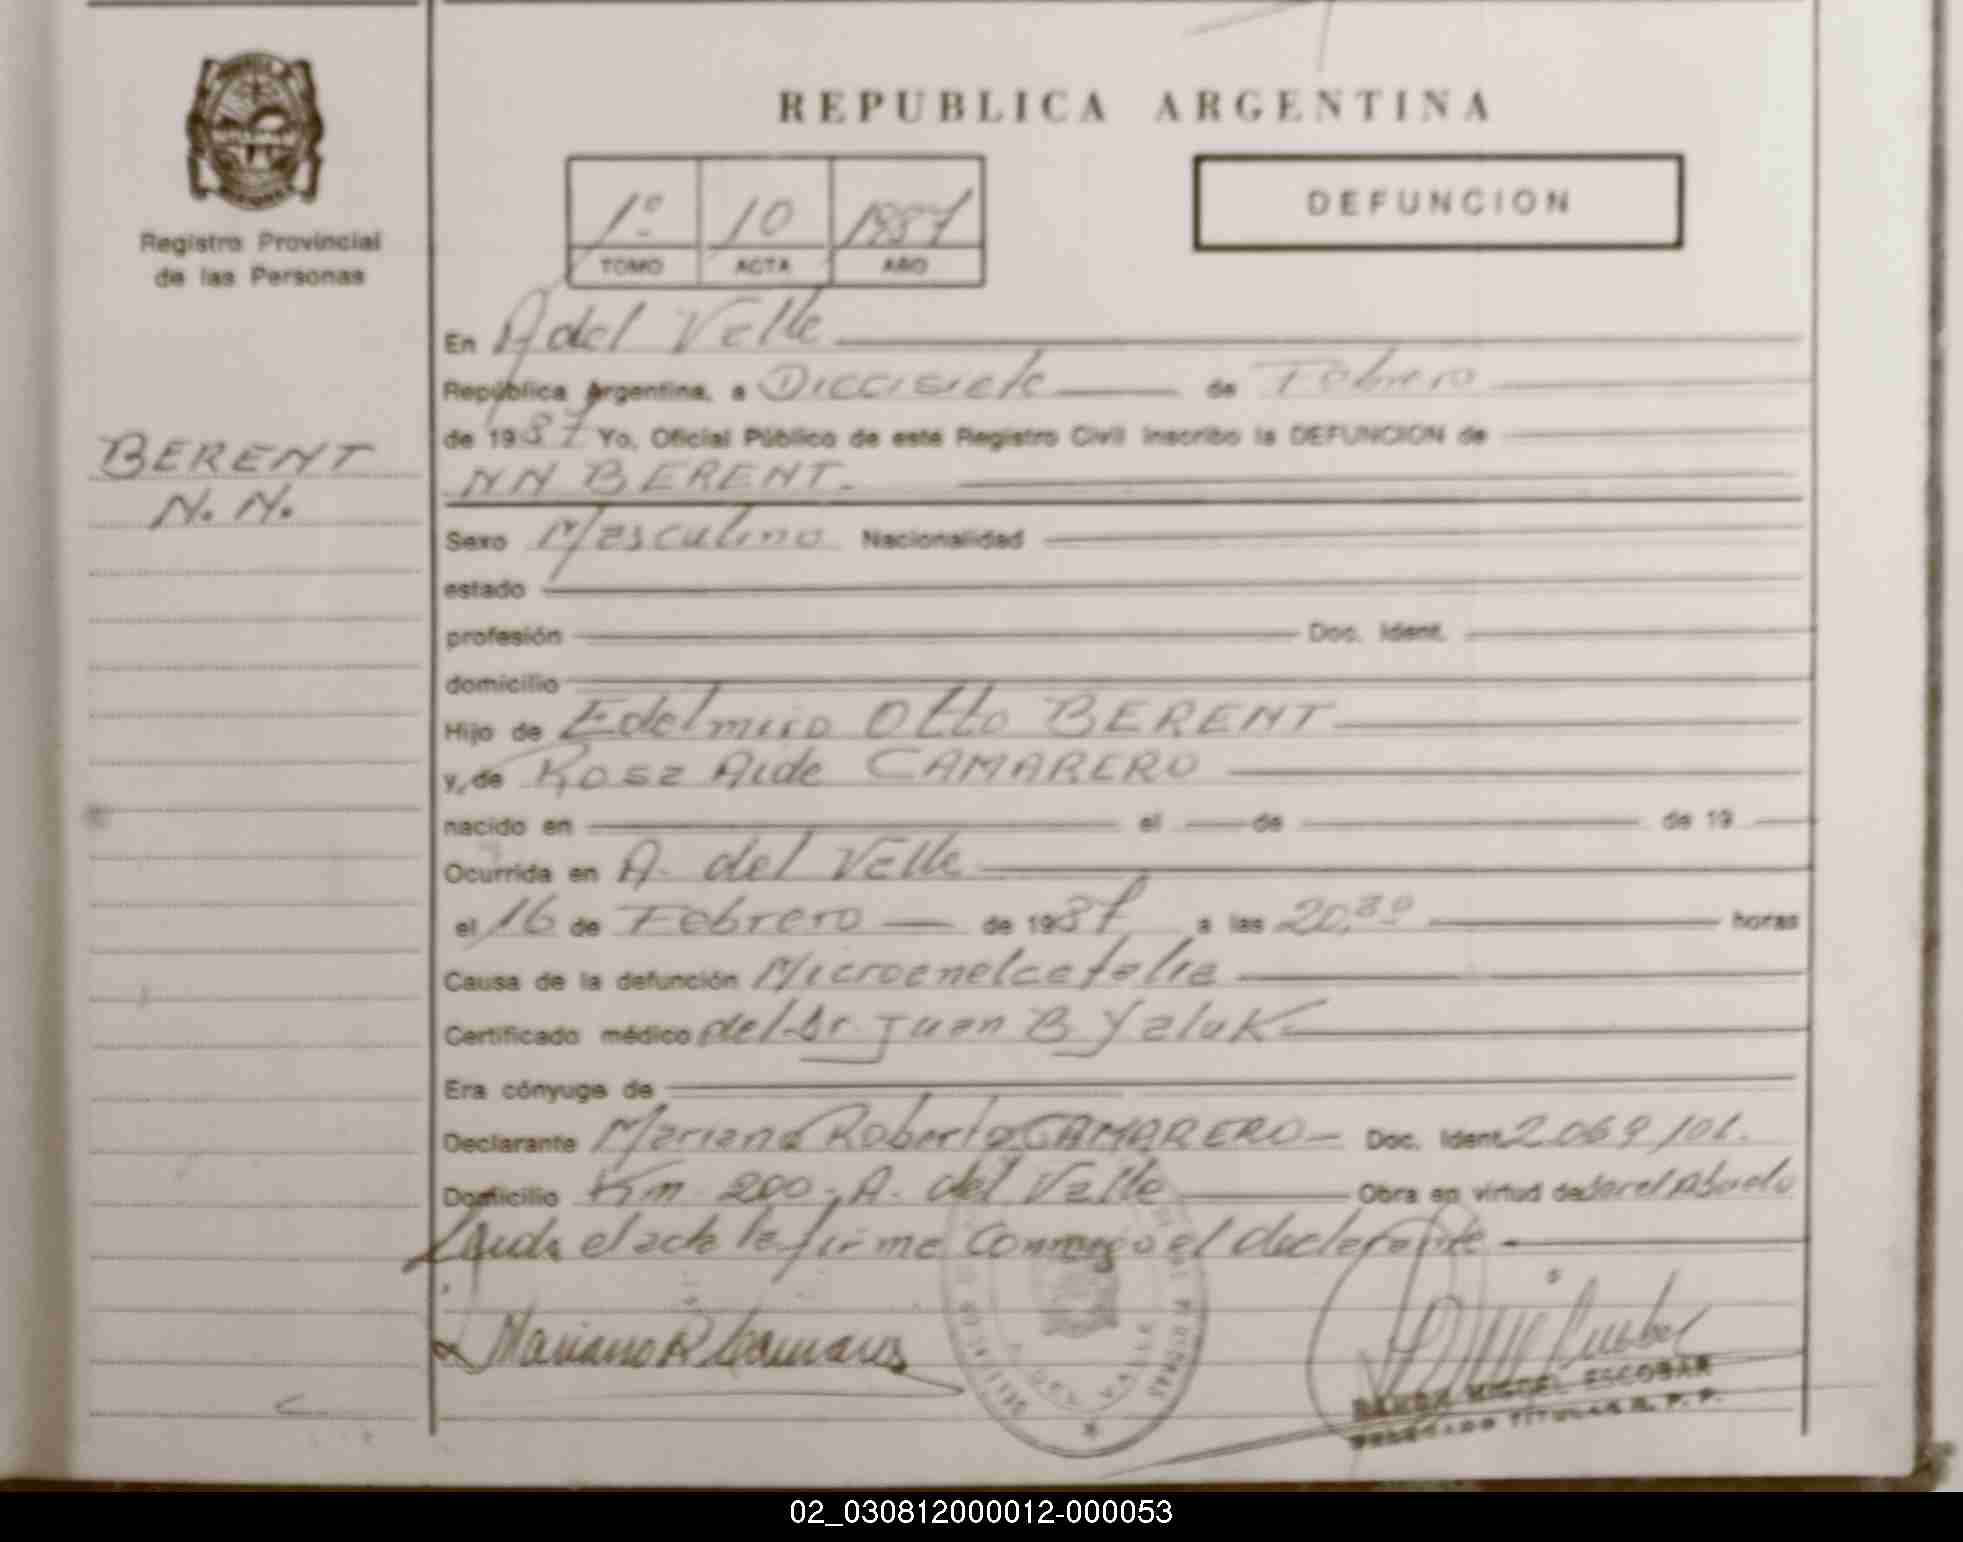 REPUBLICA ARGENTINA
1º 10 1987
TOMO ACTA AÑO
DEFUNCION
Registro Provincial
de las Personas
BERENT
N. N.
En A del Valle
República Argentina, a Diecisiete de Febrero
de 1987 Yo, Oficial Público de este Registro Civil inscribo la DEFUNCION de
NN BERENT.
Sexo Masculino Nacionalidad
estado
profesión Doc. Ident.
domicilio
Hijo de Edelmiro Otto BERENT
y de Rosa Aide CAMARERO
nacido en el de de 19
Ocurrida en A. del Valle
el 16 de Febrero de 1987 a las 20,30 horas
Causa de la defunción Microenelcefalia
Certificado médico del Dr. Juan B Yaluk
Era cónyuge de
Declarante Mariano Roberto CAMARERO Doc. Ident. 2.069.101.
Domicilio Km 200, A. del Valle Obra en virtud de ser el Abuelo
Leida el acta la firma conmigo el declarante
Mariano R Camarero
MIGUEL ESCOBAR
DELEGADO TITULAR R. P. P.
02_030812000012-000053